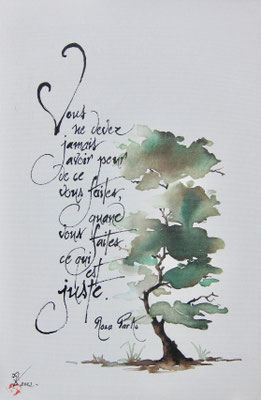 Vous
ne devez
jamais
avoir peur
de ce
vous faites,
quand
vous faites
ce qui
est
juste.
Rosa Parks